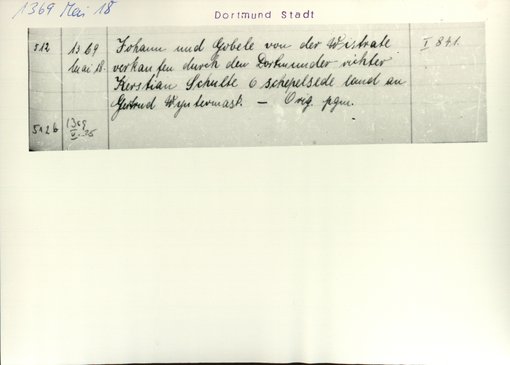 1369 Mai 18
Dortmund Stadt
512 1369 Johann und Gobele von der Wistrate I 841.
Mai 18. verkaufen durch den Dortmunder richter
Kerstian Schulte 6 schepelsede land an
Gertrud Wyntermast. — Orig. pgm.
512b 1369
V. 25